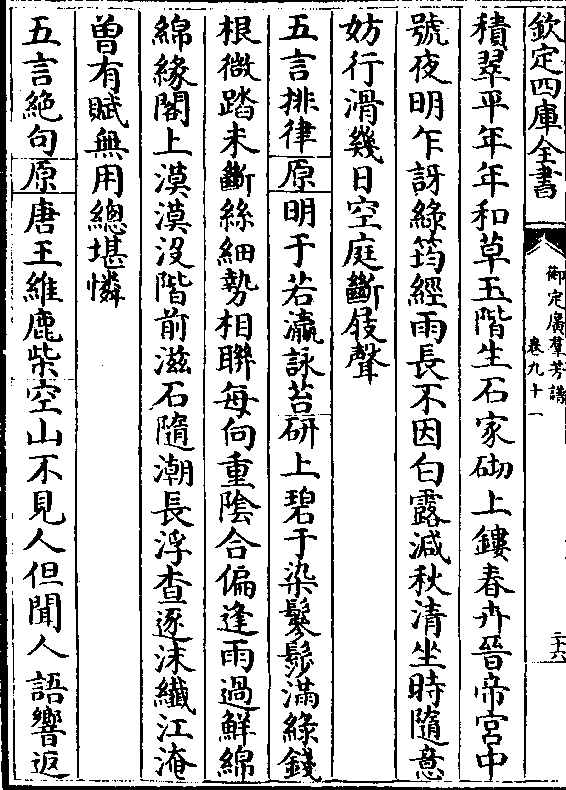 欽定四庫全書
御定廣羣芳譜
卷九十一
二十六
積翠平年年和草玉階生石家砌上鏤春卉晉帝宮中
號夜明乍訝綠筠經雨長不因白露減秋清坐時隨意
妨行滑幾日空庭斷屐聲
五言排律原明于若瀛詠苔研上碧于染鬖髿滿綠錢
根微踏未斷絲細勢相聯每向重陰合偏逢雨過鮮綿
綿緣閣上漠漠沒階前滋石隨潮長浮查逐沫纖江淹
曾有賦無用總堪憐
五言絶句原唐王維鹿柴空山不見人但聞人語響返